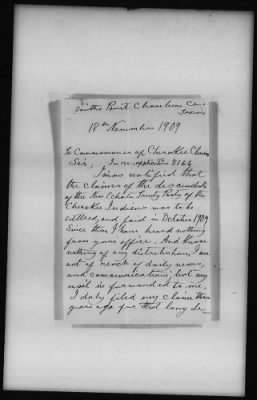 Smiths Point, Chambers Co.
Texas
18th November 1909
To Commissioner of Cherokee Claims
Sir, In re application 8166
I was notified that
the claims of the descendants
of the New Echota Treaty Party of the
Cherokee Indians was to be
settled, and paid in October 1909
Since then I have heard nothing
from your office. And know
nothing of any distribution, I am
out of reach of daily news,
and communications, but my
mail is forwarded to me.
I duly filed my claim three
years ago for that long de-